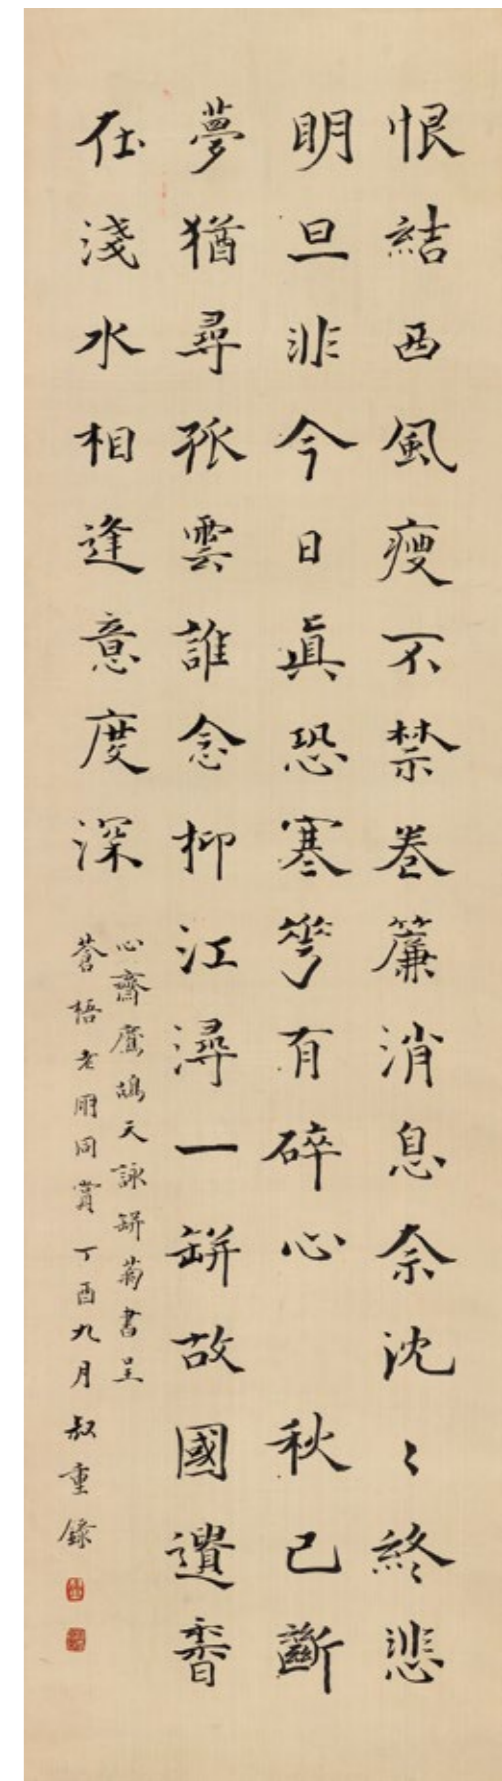 恨結西風瘦不禁卷簾消息奈沈〻終悲
明旦非今日真恐寒花有碎心　秋已斷
夢猶尋孤雲誰念抑江潯一缾故國遺香
在淺水相逢意度深
心齋鷹鴣天詠缾菊書呈
蒼梧老朋同賞丁酉九月叔重錄